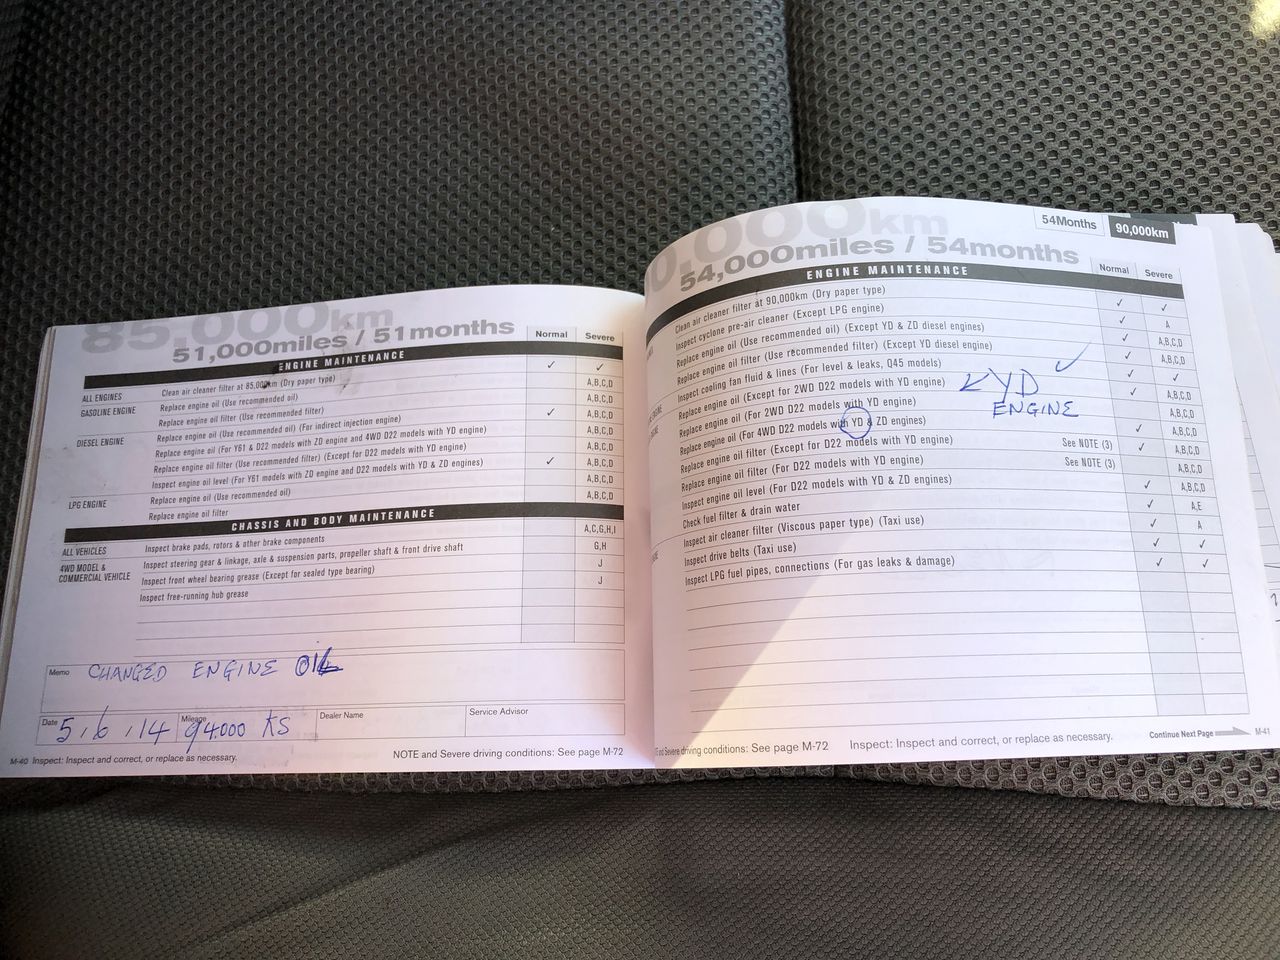 85,000km
51,000miles / 51months
Normal Severe
ENGINE MAINTENANCE
ALL ENGINES Clean air cleaner filter at 85,000km (Dry paper type) ✓ ✓
GASOLINE ENGINE Replace engine oil (Use recommended oil) A,B,C,D
Replace engine oil filter (Use recommended filter) A,B,C,D
DIESEL ENGINE Replace engine oil (Use recommended oil) (For indirect injection engine) ✓ A,B,C,D
Replace engine oil (For Y61 & D22 models with ZD engine and 4WD D22 models with YD engine) A,B,C,D
Replace engine oil filter (Use recommended filter) (Except for D22 models with YD engine) A,B,C,D
Inspect engine oil level (For Y61 models with ZD engine and D22 models with YD & ZD engines) ✓ A,B,C,D
LPG ENGINE Replace engine oil (Use recommended oil) A,B,C,D
Replace engine oil filter A,B,C,D
CHASSIS AND BODY MAINTENANCE
ALL VEHICLES Inspect brake pads, rotors & other brake components A,C,G,H,I
4WD MODEL & COMMERCIAL VEHICLE Inspect steering gear & linkage, axle & suspension parts, propeller shaft & front drive shaft G,H
Inspect front wheel bearing grease (Except for sealed type bearing) J
Inspect free-running hub grease J
Memo CHANGED ENGINE OIL
Date 5.6.14 Mileage 94000 KS Dealer Name Service Advisor
M-40 Inspect: Inspect and correct, or replace as necessary. NOTE and Severe driving conditions: See page M-72
54Months 90,000km
0,000km
54,000miles / 54months
Normal Severe
ENGINE MAINTENANCE
Clean air cleaner filter at 90,000km (Dry paper type) ✓ ✓
Inspect cyclone pre-air cleaner (Except LPG engine) ✓ A
Replace engine oil (Use recommended oil) (Except YD & ZD diesel engines) ✓ A,B,C,D
Replace engine oil filter (Use recommended filter) (Except YD diesel engine) ✓ A,B,C,D
Inspect cooling fan fluid & lines (For level & leaks, Q45 models) ✓ ✓
Replace engine oil (Except for 2WD D22 models with YD engine) ✓ A,B,C,D
YD ✓
ENGINE
Replace engine oil (For 2WD D22 models with YD engine) A,B,C,D
Replace engine oil (For 4WD D22 models with YD & ZD engines) ✓ A,B,C,D
Replace engine oil filter (Except for D22 models with YD engine) See NOTE (3) ✓ A,B,C,D
Replace engine oil filter (For D22 models with YD engine) See NOTE (3) A,B,C,D
Inspect engine oil level (For D22 models with YD & ZD engines) ✓ A,B,C,D
Check fuel filter & drain water ✓ A,E
Inspect air cleaner filter (Viscous paper type) (Taxi use) ✓ A
Inspect drive belts (Taxi use) ✓ ✓
Inspect LPG fuel pipes, connections (For gas leaks & damage) ✓ ✓
and Severe driving conditions: See page M-72 Inspect: Inspect and correct, or replace as necessary. Continue Next Page M-41